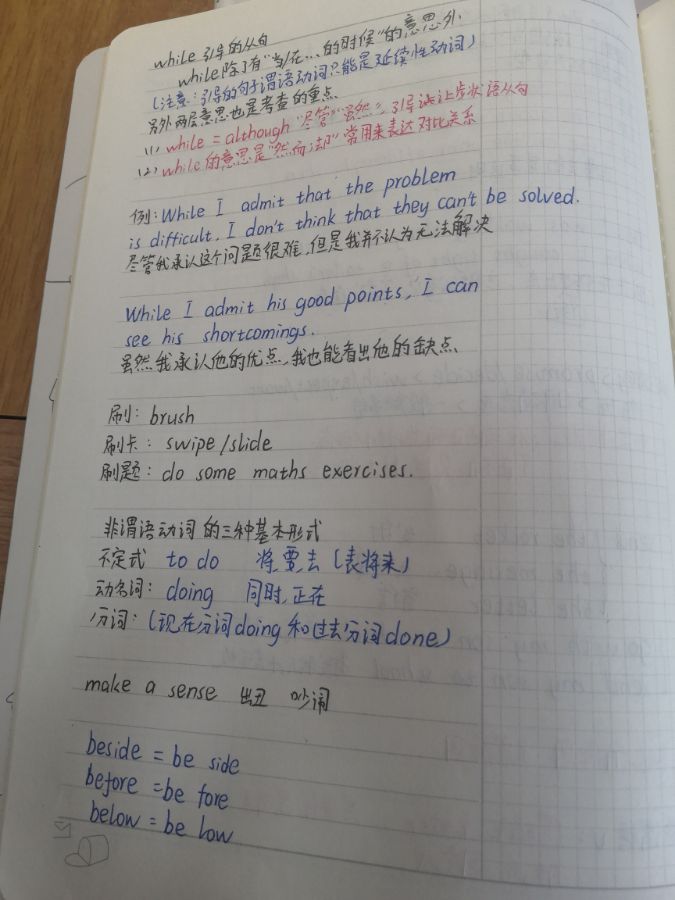 while 引导的从句
while除了有“当/在...的时候”的意思外
(注意:引导的句子谓语动词只能是延续性动词)
另外两层意思也是考查的重点
(1) while = although “尽管”“虽然”, 引导让步状语从句
(2) while的意思是“然而/却” 常用来表达对比关系
例: While I admit that the problem
is difficult, I don't think that they can't be solved.
尽管我承认这个问题很难,但是我并不认为无法解决
While I admit his good points, I can
see his shortcomings.
虽然我承认他的优点,我也能看出他的缺点
刷: brush
刷卡: swipe/slide
刷题: do some maths exercises.
非谓语动词的三种基本形式
不定式 to do 将,要,去 (表将来)
动名词: doing 同时,正在
分词: (现在分词doing和过去分词done)
make a sense 出丑 吵闹
beside = be side
before = be fore
below = be low